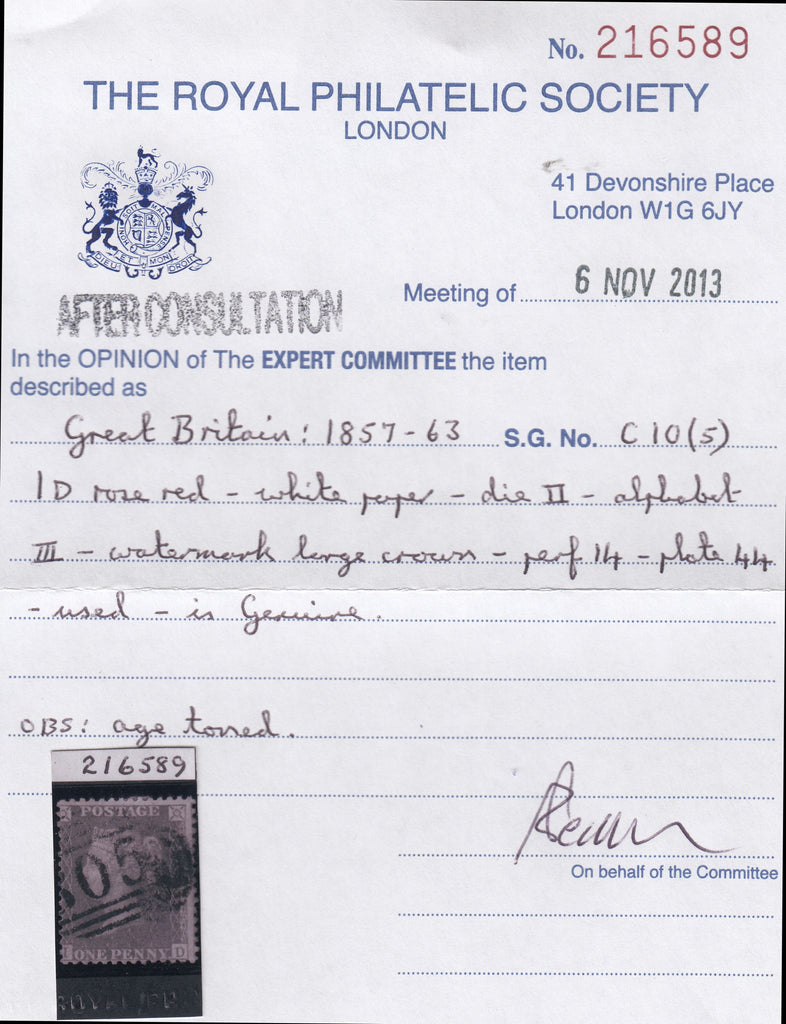 No. 216589
THE ROYAL PHILATELIC SOCIETY
LONDON
41 Devonshire Place
London W1G 6JY
DIEU ET MON DROIT
Meeting of 6 NOV 2013
AFTER CONSULTATION
In the OPINION of The EXPERT COMMITTEE the item
described as
Great Britain: 1857-63 S.G. No. C10(5)
1D rose red - white paper - die II - alphabet
III - watermark large crown - perf 14 - plate 44
- used - is Genuine.
OBS: age toned.
216589
POSTAGE
05
ONE PENNY D
On behalf of the Committee